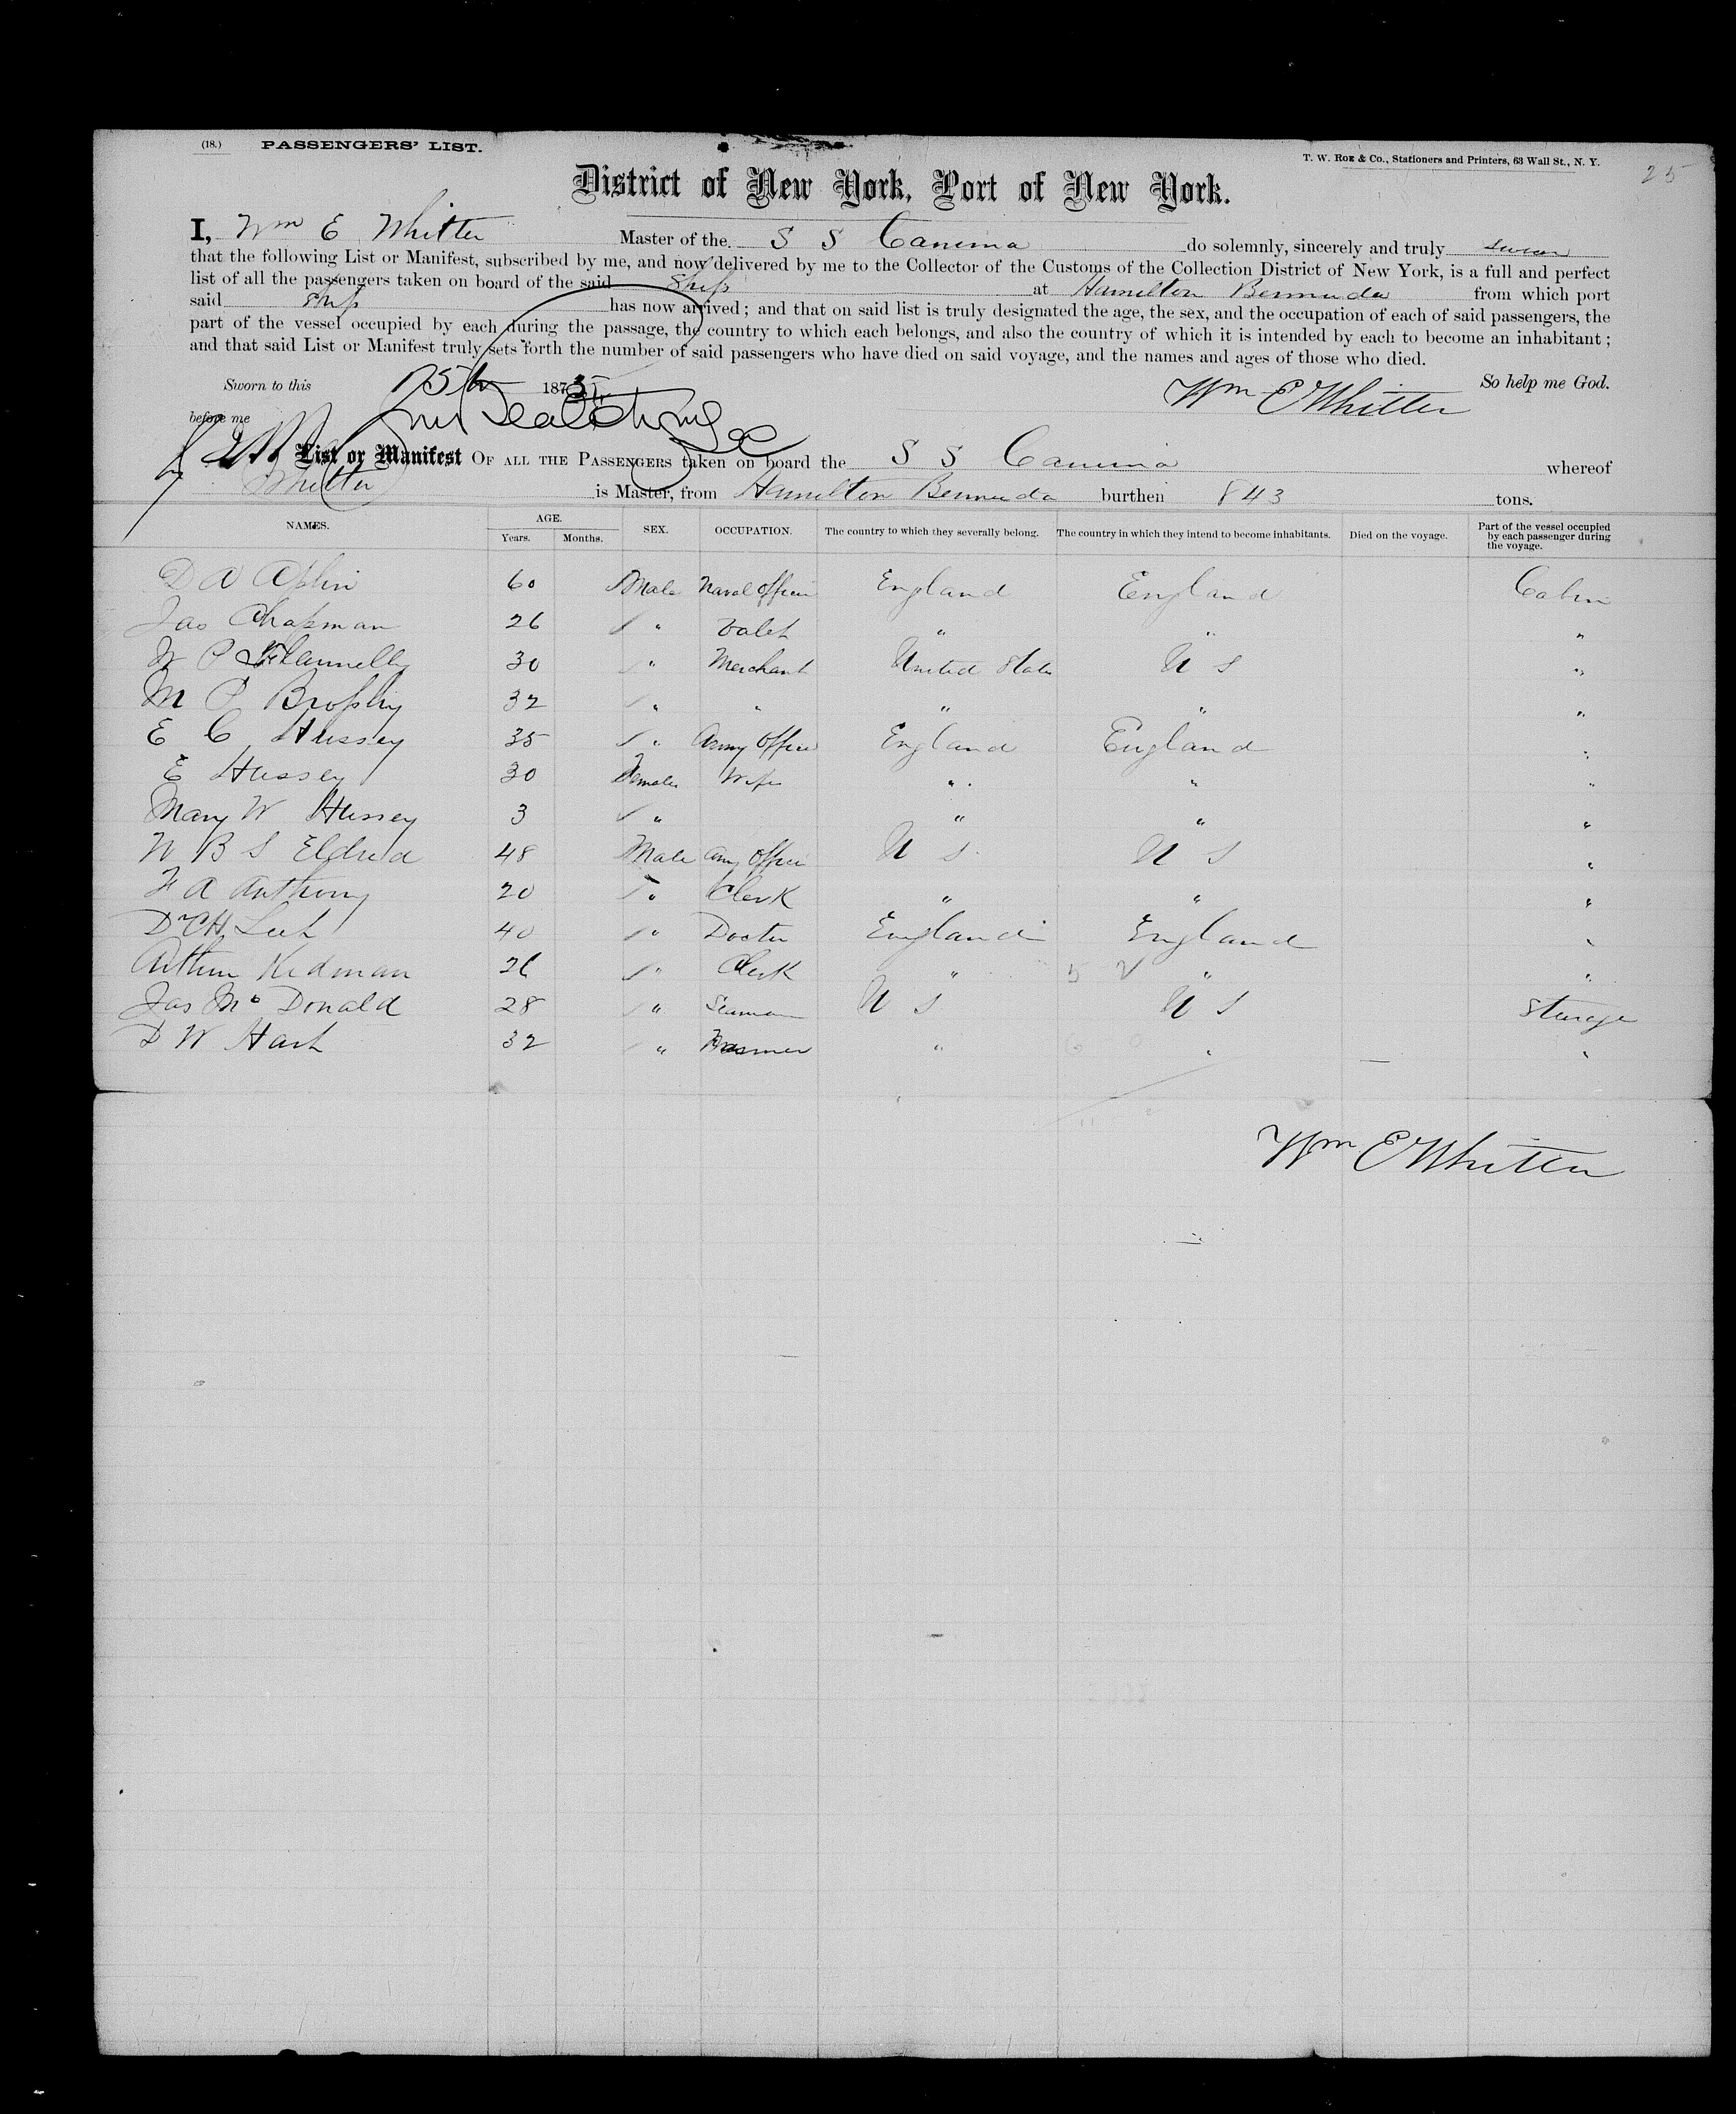 (18.) PASSENGERS' LIST.
T. W. ROE & Co., Stationers and Printers, 63 Wall St., N. Y.
25
District of New York, Port of New York.
I, Wm E Whitter Master of the S S Canima do solemnly, sincerely and truly swear
that the following List or Manifest, subscribed by me, and now delivered by me to the Collector of the Customs of the Collection District of New York, is a full and perfect
list of all the passengers taken on board of the said Ship at Hamilton Bermuda from which port
said Ship has now arrived; and that on said list is truly designated the age, the sex, and the occupation of each of said passengers, the
part of the vessel occupied by each during the passage, the country to which each belongs, and also the country of which it is intended by each to become an inhabitant;
and that said List or Manifest truly sets forth the number of said passengers who have died on said voyage, and the names and ages of those who died.
Sworn to this 1875 So help me God.
Wm E Whitter
before me
List or Manifest OF ALL THE PASSENGERS taken on board the S S Canima whereof
Whitter is Master, from Hamilton Bermuda burthen 843 tons.
NAMES. AGE. Years. Months. SEX. OCCUPATION. The country to which they severally belong. The country in which they intend to become inhabitants. Died on the voyage. Part of the vessel occupied by each passenger during the voyage.
D A Aplin 60 Male Naval Officer England England Cabin
Jas Chapman 26 " Valet " " "
W P Flannelly 30 " Merchant United States U S "
M P Brophy 32 " " " " "
E C Hussey 35 " Army Officer England England "
E Hussey 30 Female Wife " " "
Mary W Hussey 3 " " " "
W B S Eldred 48 Male Army Officer U S U S "
A Anthony 20 " Clerk " " "
Dr C H 40 " Doctor England England "
Arthur Kidman 26 " Clerk " " "
Jas McDonald 28 " Seaman U S U S Steerage
D W Hart 32 " " " "
Wm E Whitter